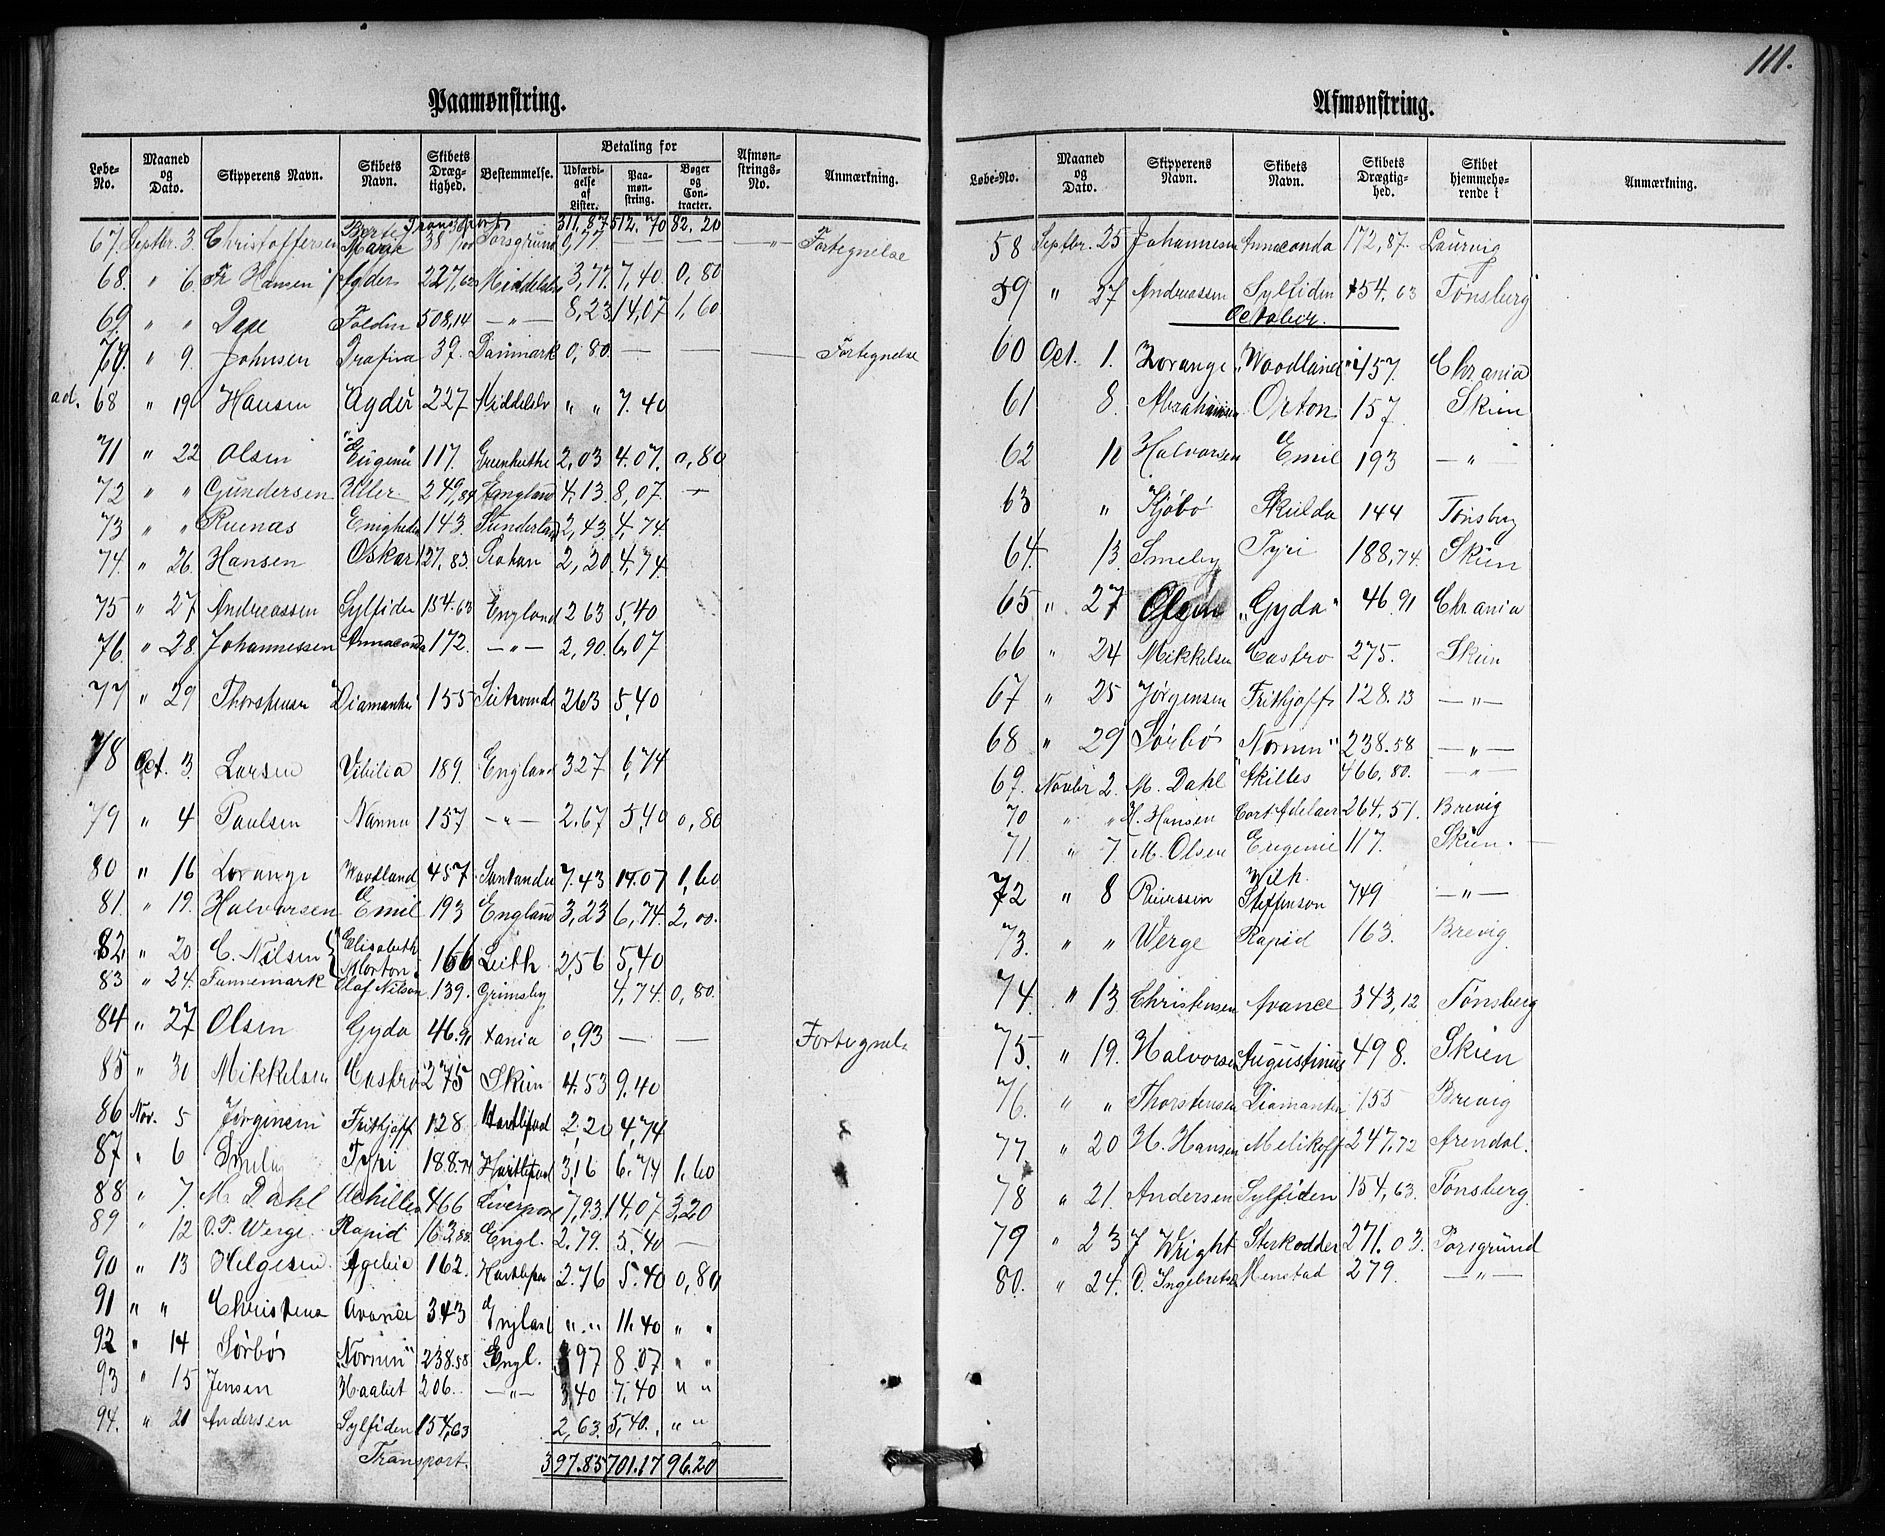 111.
Paamønstring.
Løbe-No. Maaned og Dato. Skipperens Navn. Skibets Navn. Skibets Drægtighed. Bestemmelse. Betaling for Udfærdigelse af Lister. Paamønstring. Bøger og Contracter. Afmønstrings-No. Anmærkning.
Transport 311.87 512.70 82.20
67. Septbr. 3. Christoffersen Marie 38 Porsgrund 0,77 — — — " — Fortegnelse
68. " 6. Fr Hansen Agder 227,62 Middelsbr 3,77. 7,40. 0,80
69 " " Dase Folden 508,14 — " — 8,23 14,07 1,60
70. " 9. Johnsen 39. Danmark 0,80. — — — Fortegnelse
ad. 68 " 19 Hansen Agder 227 Middelsbr " " 7.40
71 " 22 Olsen Eugenie 117. 2,03 4.07. 0,80
72 " " Gundersen Uller 249,84 England 4,13 8,07. —
73 " " Ruenas Enigheden 143. Sunderland 2,43. 4,74.
74. " 26. Hansen Oskar 127.83. Seaham 2,20 4,74.
75 " 27 Andreassen Sylfiden 154.63 England 263 5,40
76. " 28. Johannessen Annaconda 172. — " — 2,90. 6,07
77 " 29 Thorstensen Diamanten 155 263 5,40
78 Oct. 3. Larsen Vibilia 189. England 327 6,74
79 " 4 Paulsen Nanna 157 — " — 2.67 5,40 0,80
80 " 16 Lorange Woodland 457 Santander 7.43 14.07 1,60
81. " 19. Halvorsen Emil 193 England 3,23 6,74. 2,00.
82. " 20 C. Nilsen Elisabeth Morton 166 Leith 2,56 5,40
83 " 24. Tannemark Olaf Nilson 139. Grimsby 4,74. 0,80.
84 " 27 Olsen Gyda 46.91 Xania 0,93 — — Fortegnels
85 " 31 Mikkelsen Castro 275 Skien 4.53 9.40
86 Nov. 5 Jørginsen Frithjoff 128 Hartlepool 2,20 4,74
87 " 6 Smeby Tyri 188.74 Hartlepool 3,16 6.74 1.60
88 " 7. M. Dahl Achilles 466 Liverpool 7,93. 14,07. 3,20
89 " 12 O.P. Werge Rapid 163,88 Engl. 2.79. 5.40 —
90 " 13 Helgesen 162. Hartlepool 2.76 5.40 0,80
91 " " Christensen Avance 343 England " . " 11.40 " "
92 " 14 Sørbø "Nornen" 238.58 Engl. 397 8.07 " "
93 " 15 Jensen Haabet 206. — " — 3,40 7,40 " "
94. " 21 Andersen Sylfiden 154,63 2,63. 5,40. " "
Transport. 397.85 701.17 96.20
Afmønstring.
Løbe-No. Maaned og Dato. Skipperens Navn. Skibets Navn. Skibets Drægtighed. Skibet hjemmehørende i Anmærkning.
58 Septbr. 25 Johannesen Annaconda 172,87. Laurvig
59 " 27 Andreassen Sylfiden 154.63 Tønsberg
October.
60 Oct. 1. Lorange "Woodland" 457. Chrania
61 8. Abrahamsen Orton 157. Skien
62 10 Halvorsen Emil 193 — " —
63 " Kjøbø Skulda 144 Tønsberg
64. 13. Smeby Tyri 188,74. Skien
65 " 27 Olsen "Gyda" 46.91 Chrania
66 " 24 Mikkelsen Castro 275. Skien
67 " 25 Jørgensen Frithjoff 128.13 — " —
68 " 29 Sørbø "Nornen" 238.58 — " —
69. Novbr 2. M. Dahl Akilles 466,80. — " —
70 " " H. Hansen Cort Adelaer 264.51. Brevig
71. " 7. M. Olsen Eugenie 117. Skien.
72 " 8 Reierssen Wilh. Steffenson 749 — " —
73. " " Werge Rapid 163. Brevig
74. " 13 Christensen Avance 343,12 Tønsberg
75. " 19. Halvorsen Augustinus 498. Skien
76. " " Thorstensen Diamanten 155 Brevig
77. " 20 H. Hansen Melikoff 247.72 Arendal.
78 " 21. Andersen Sylfiden 154,63. Tønsberg.
79 " 23 J Wright Sterkodder 271.03. Porsgrund
80. " 24. O. Ingebretsen Menstad 279. — " —